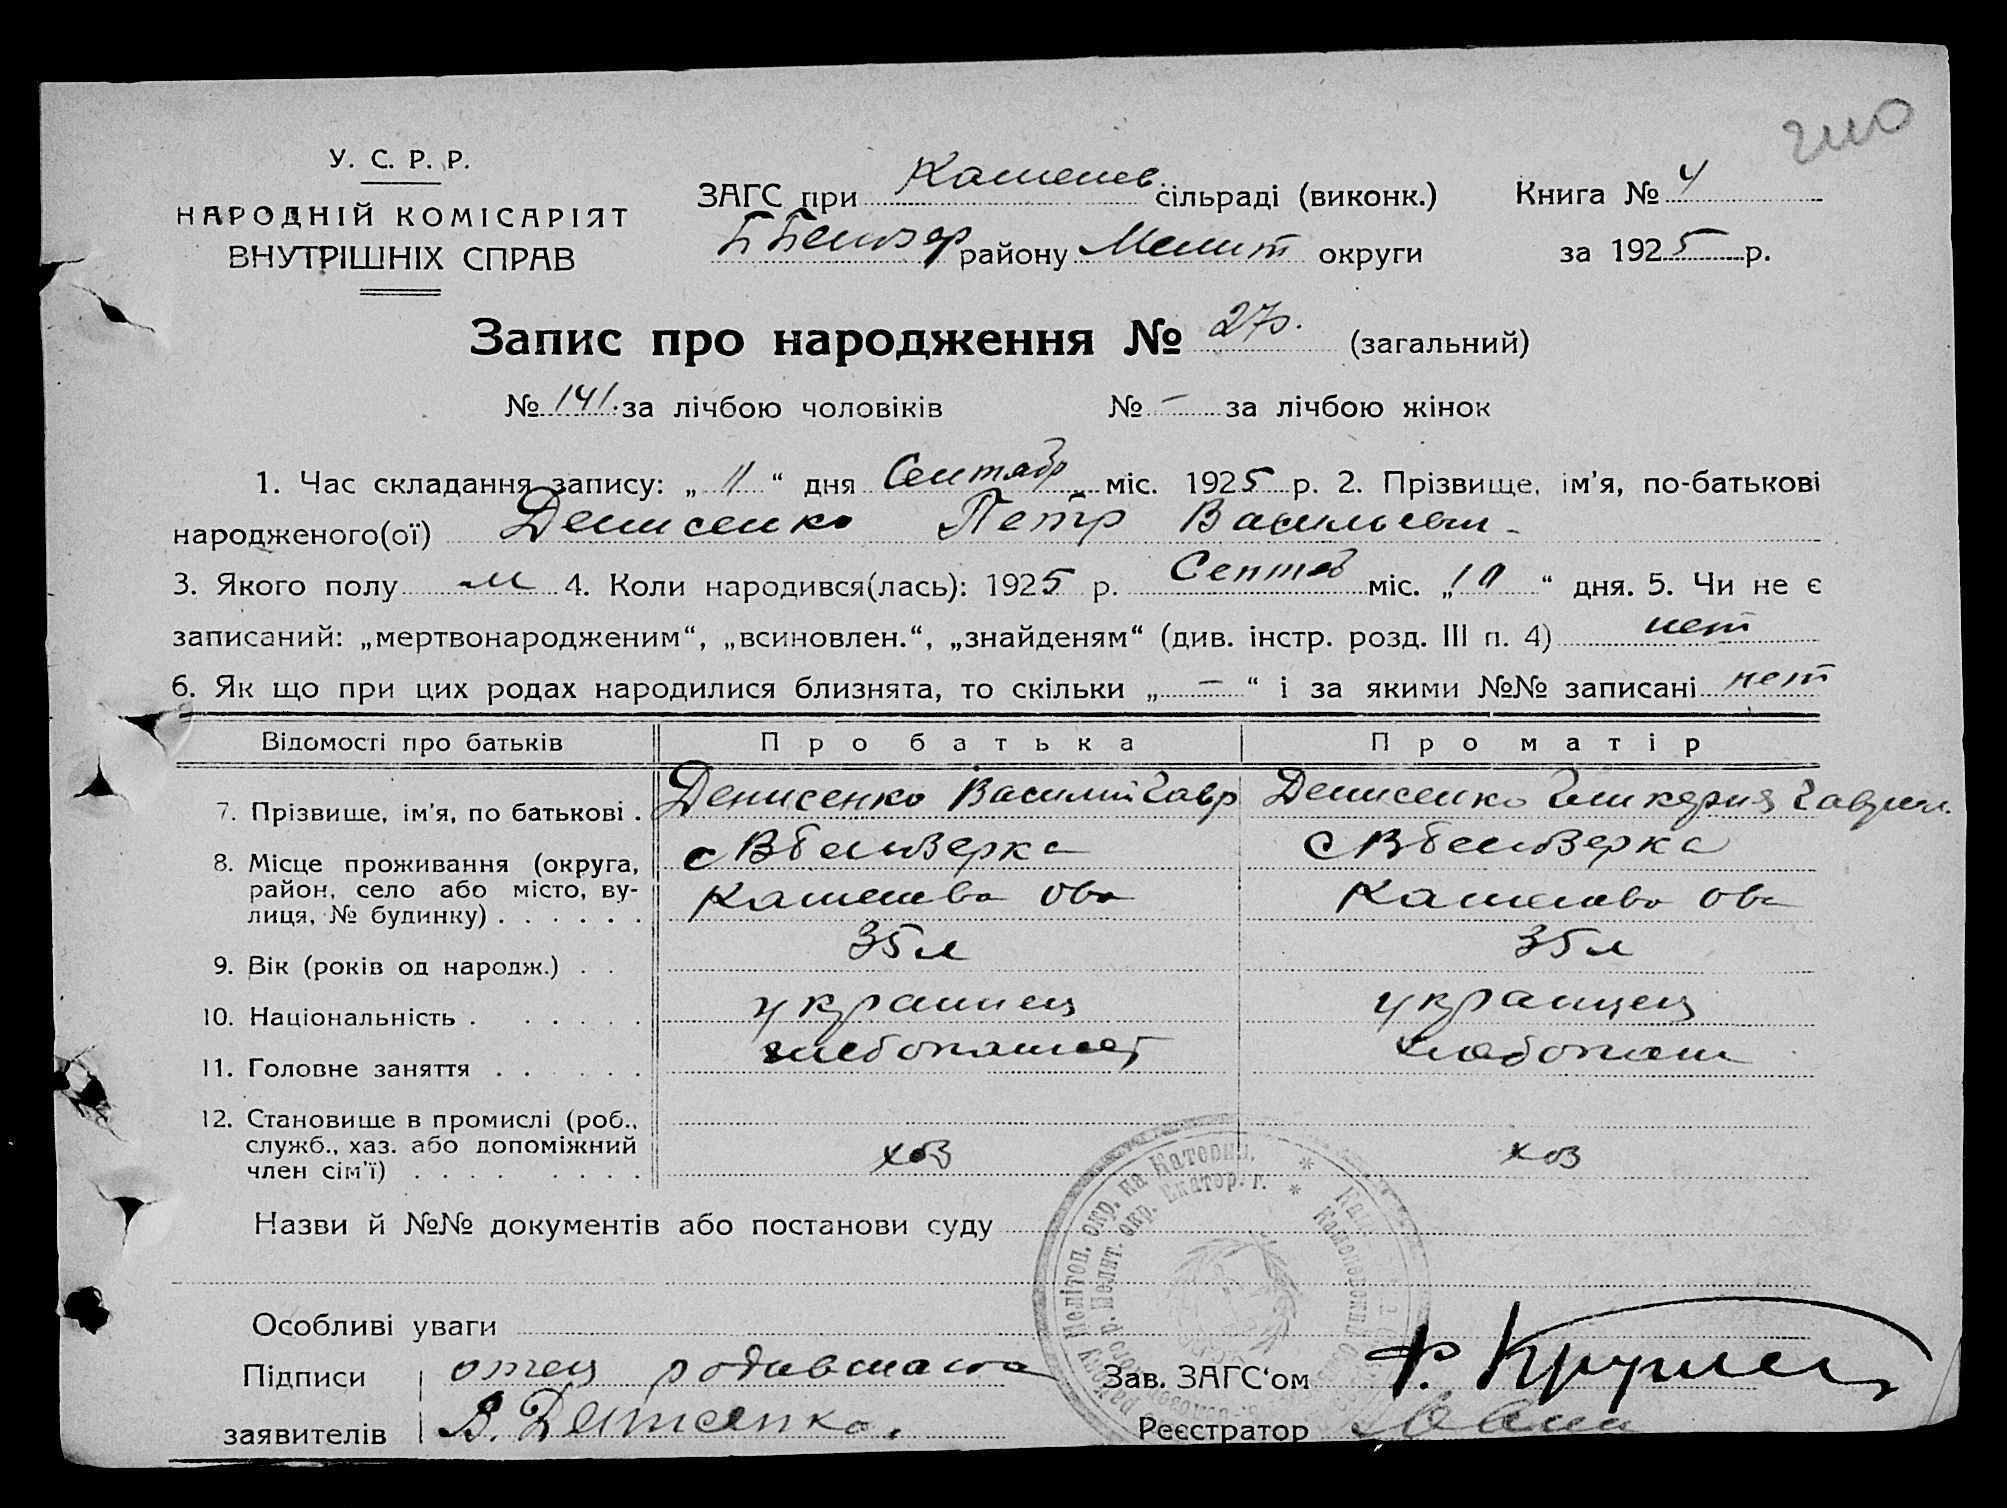 У. С. Р. Р.
НАРОДНІЙ КОМІСАРІЯТ
ВНУТРІШНІХ СПРАВ
ЗАГС при Каменев. сільраді (виконк.)
Книга № 4
району Мелит округи
за 1925 р.
Запис про народження № 270. (загальний)
№ 141. за лічбою чоловіків № – за лічбою жінок
1. Час складання запису: „ 11 “ дня Сентябр міс. 1925 р. 2. Прізвище, ім'я, по-батькові
народженого(ої) Денисенко Петр Васильевич
3. Якого полу м 4. Коли народився(лась): 1925 р. Сентяб міс. „ 10 “ дня. 5. Чи не є
записаний: „мертвонародженим“, „всиновлен.“, „знайденям“ (див. інстр. розд. III п. 4) нет
6. Як що при цих родах народилися близнята, то скільки „ – “ і за якими №№ записані нет
Відомості про батьків Про батька Про матір
7. Прізвище, ім'я, по батькові . Денисенко Василий Гавр Денисенко Гликерия Гаврил.
8. Місце проживання (округа,
район, село або місто, ву-
лиця, № будинку) . . . . . .
с В белозерка с В белозерка
Каменево Ова Каменево Ова
9. Вік (років од народж.) . . 35 л 35 л
10. Національність . . . . . . украинец украинец
11. Головне заняття . . . . . . хлебопашест хлебопаш
12. Становище в промислі (роб.,
служб., хаз. або допоміжний
член сім'ї) . . . . . . . . .
хоз хоз
Назви й №№ документів або постанови суду
Особливі уваги
Підписи
заявителів
отец родившагося
В. Денисенко.
Зав. ЗАГС'ом
Реєстратор